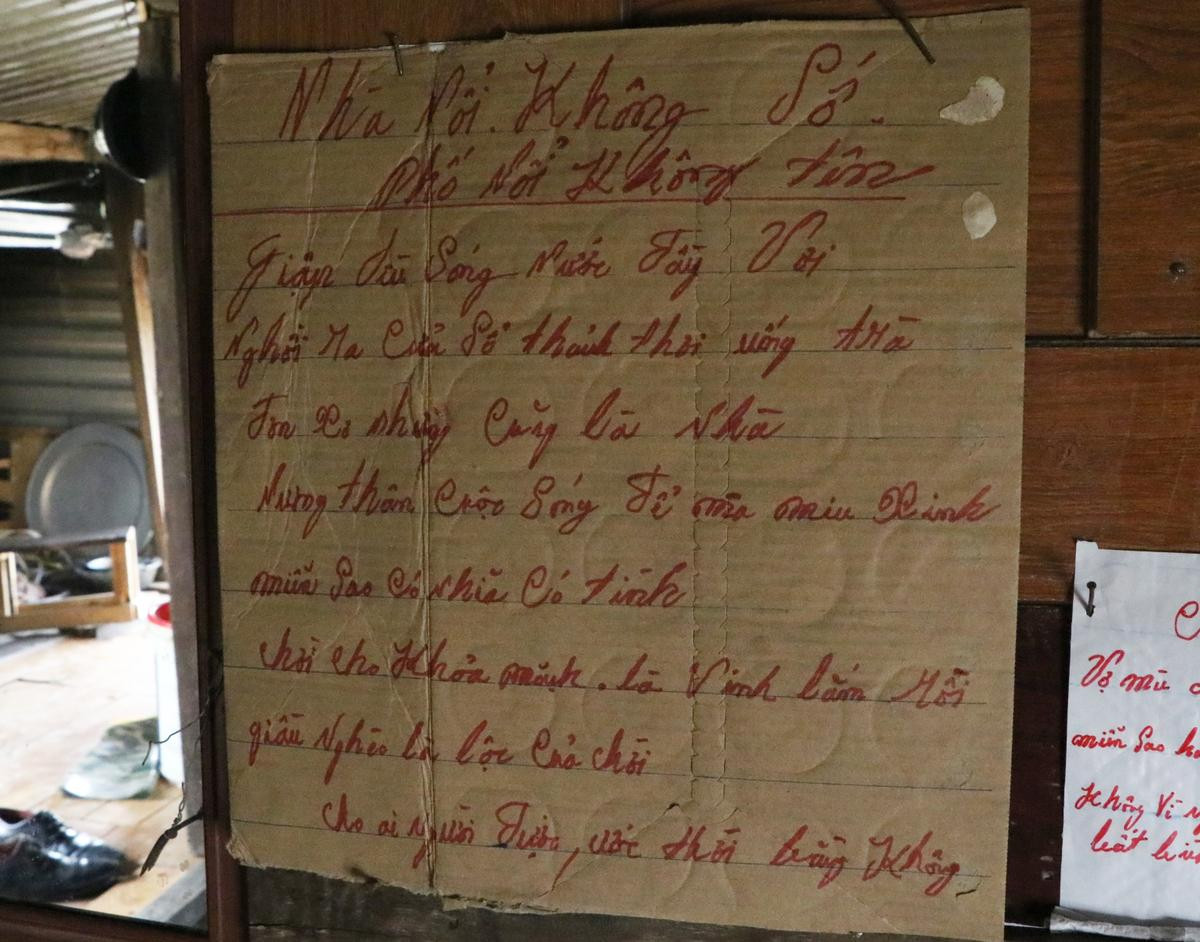 Nhà Nổi. Không Số.
Phố Nổi Không tên
Giậm Sóng Nước Đầy Vơi
Nghồi ra Cửa Sổ thảnh thơi uống trà
Đơn Xơ nhưng Cũng là Nhà
Nương thân Cuộc Sóng Để mà miu Xinh
miễn Sao Có Nhiã Có tình
chời cho Khỏa mạnh. là Vinh lắm rồi
giầu Nghèo là lộc Của chời
cho ai người Được, ước thời bằng Không
Vợ mù
miễn Sao
Không Vì
bất